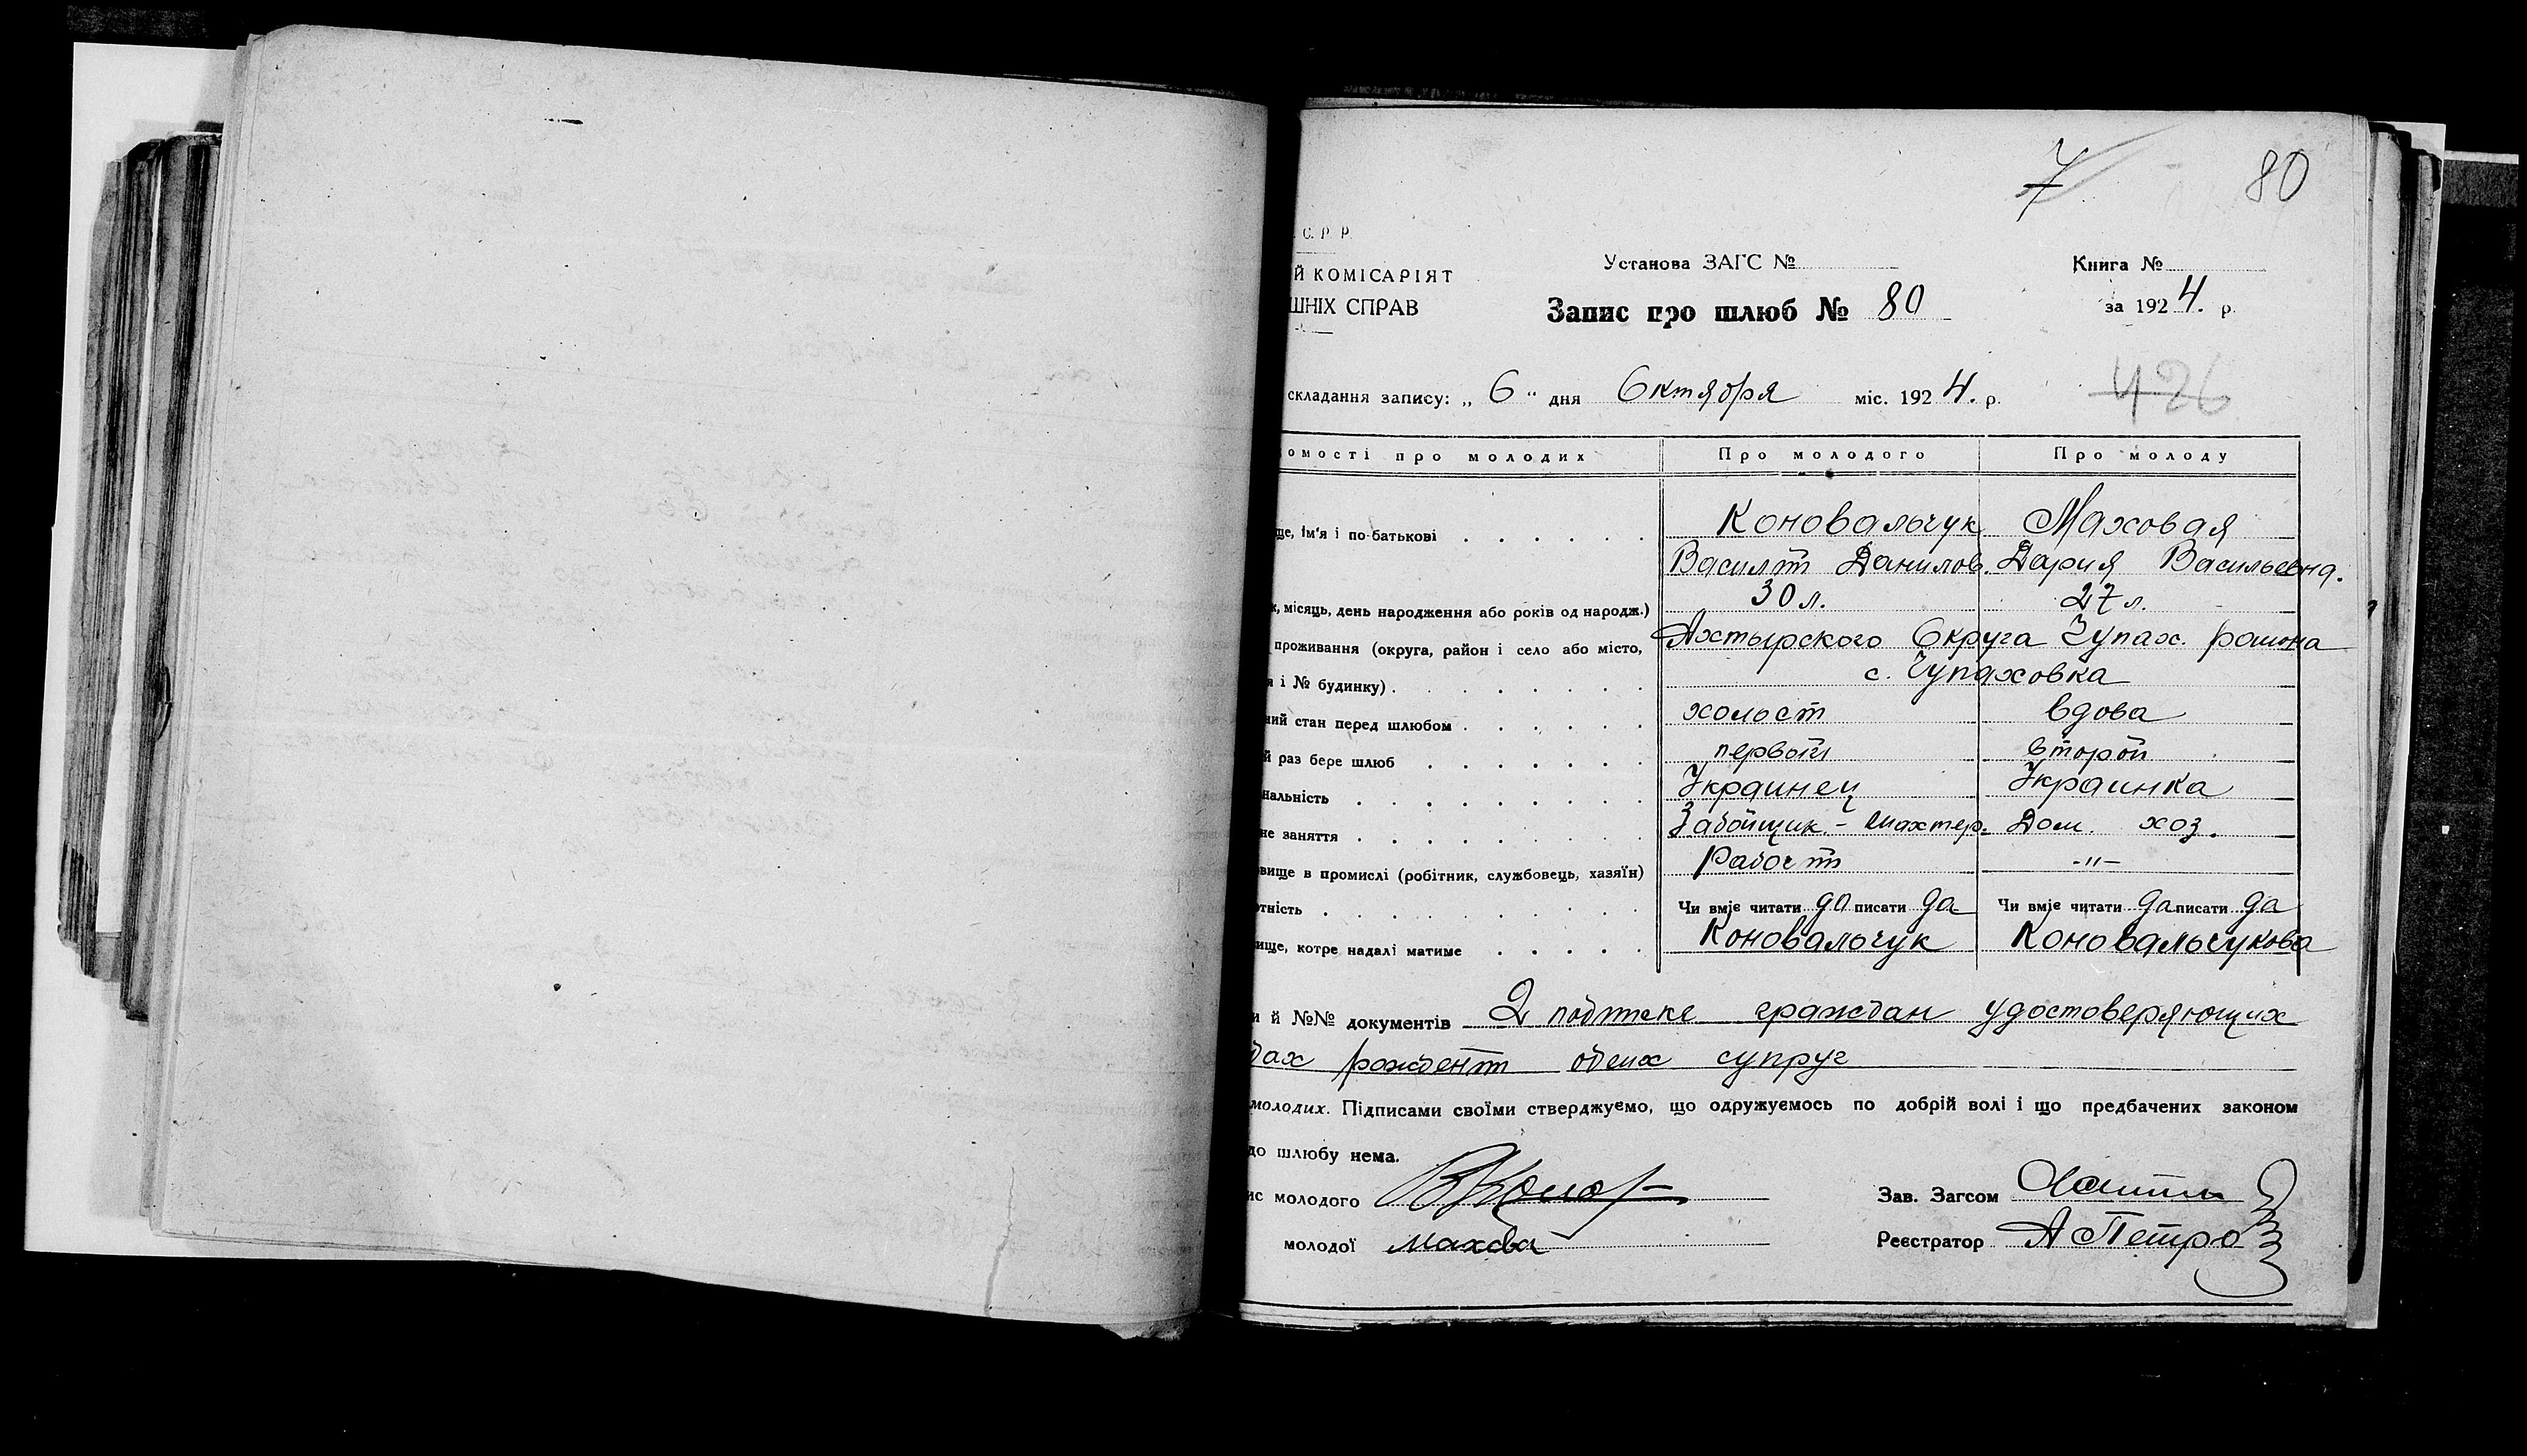 7 80
С. Р. Р.
Й КОМІСАРІЯТ Установа ЗАГС № Книга №
ШНІХ СПРАВ Запис про шлюб № 80 за 1924. р.
складання запису: „ 6 “ дня Октября міс. 1924. р. 426
омості про молодих Про молодого Про молоду
ще, ім'я і по-батькові Коновальчук Маховая
Василій Данилов. Дария Васильевна.
, місяць, день народження або років од народж.) 30 л. 27 л.
проживання (округа, район і село або місто, Ахтырского Округа Чупах. района
я і № будинку) с. Чупаховка
ний стан перед шлюбом холост вдова
й раз бере шлюб первой второй
нальність Украинец Украинка
не заняття Забойщик - шахтер. Дом. хоз.
вище в промислі (робітник, службовець, хазяїн) -"-
тність Чи вміє читати да писати да Чи вміє читати да писати да
ище, котре надалі матиме Коновальчук Коновальчукова
и й №№ документів 2 граждан удостоверяющих
дах обеих супруг
молодих. Підписами своїми стверджуємо, що одружуємось по добрій волі і що предбачених законом
до шлюбу нема.
ис молодого Зав. Загсом
молодої Махова Реєстратор А Петро